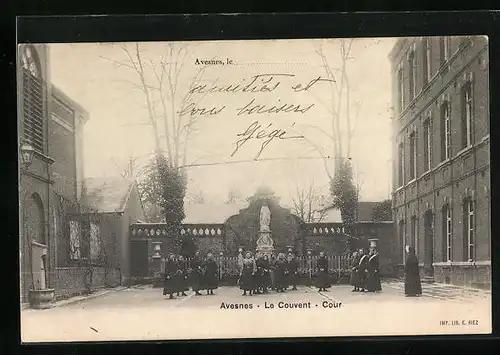 Avesnes, le
amitiés et
bons baisers
Gégé
Avesnes - Le Couvent - Cour
IMP. LIB. E. RIEZ